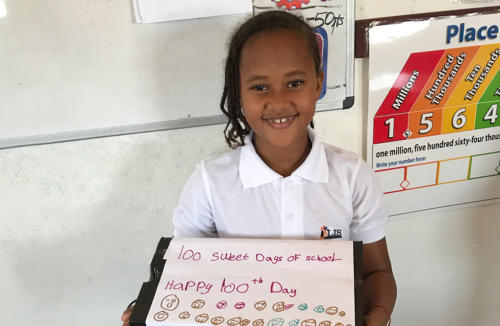 50pts
Place
Millions
Hundred Thousands
Ten Thousands
1,564
one million, five hundred sixty-four thou
Write your number here:
LIS
100 Sweet Days of school
Happy 100th Day